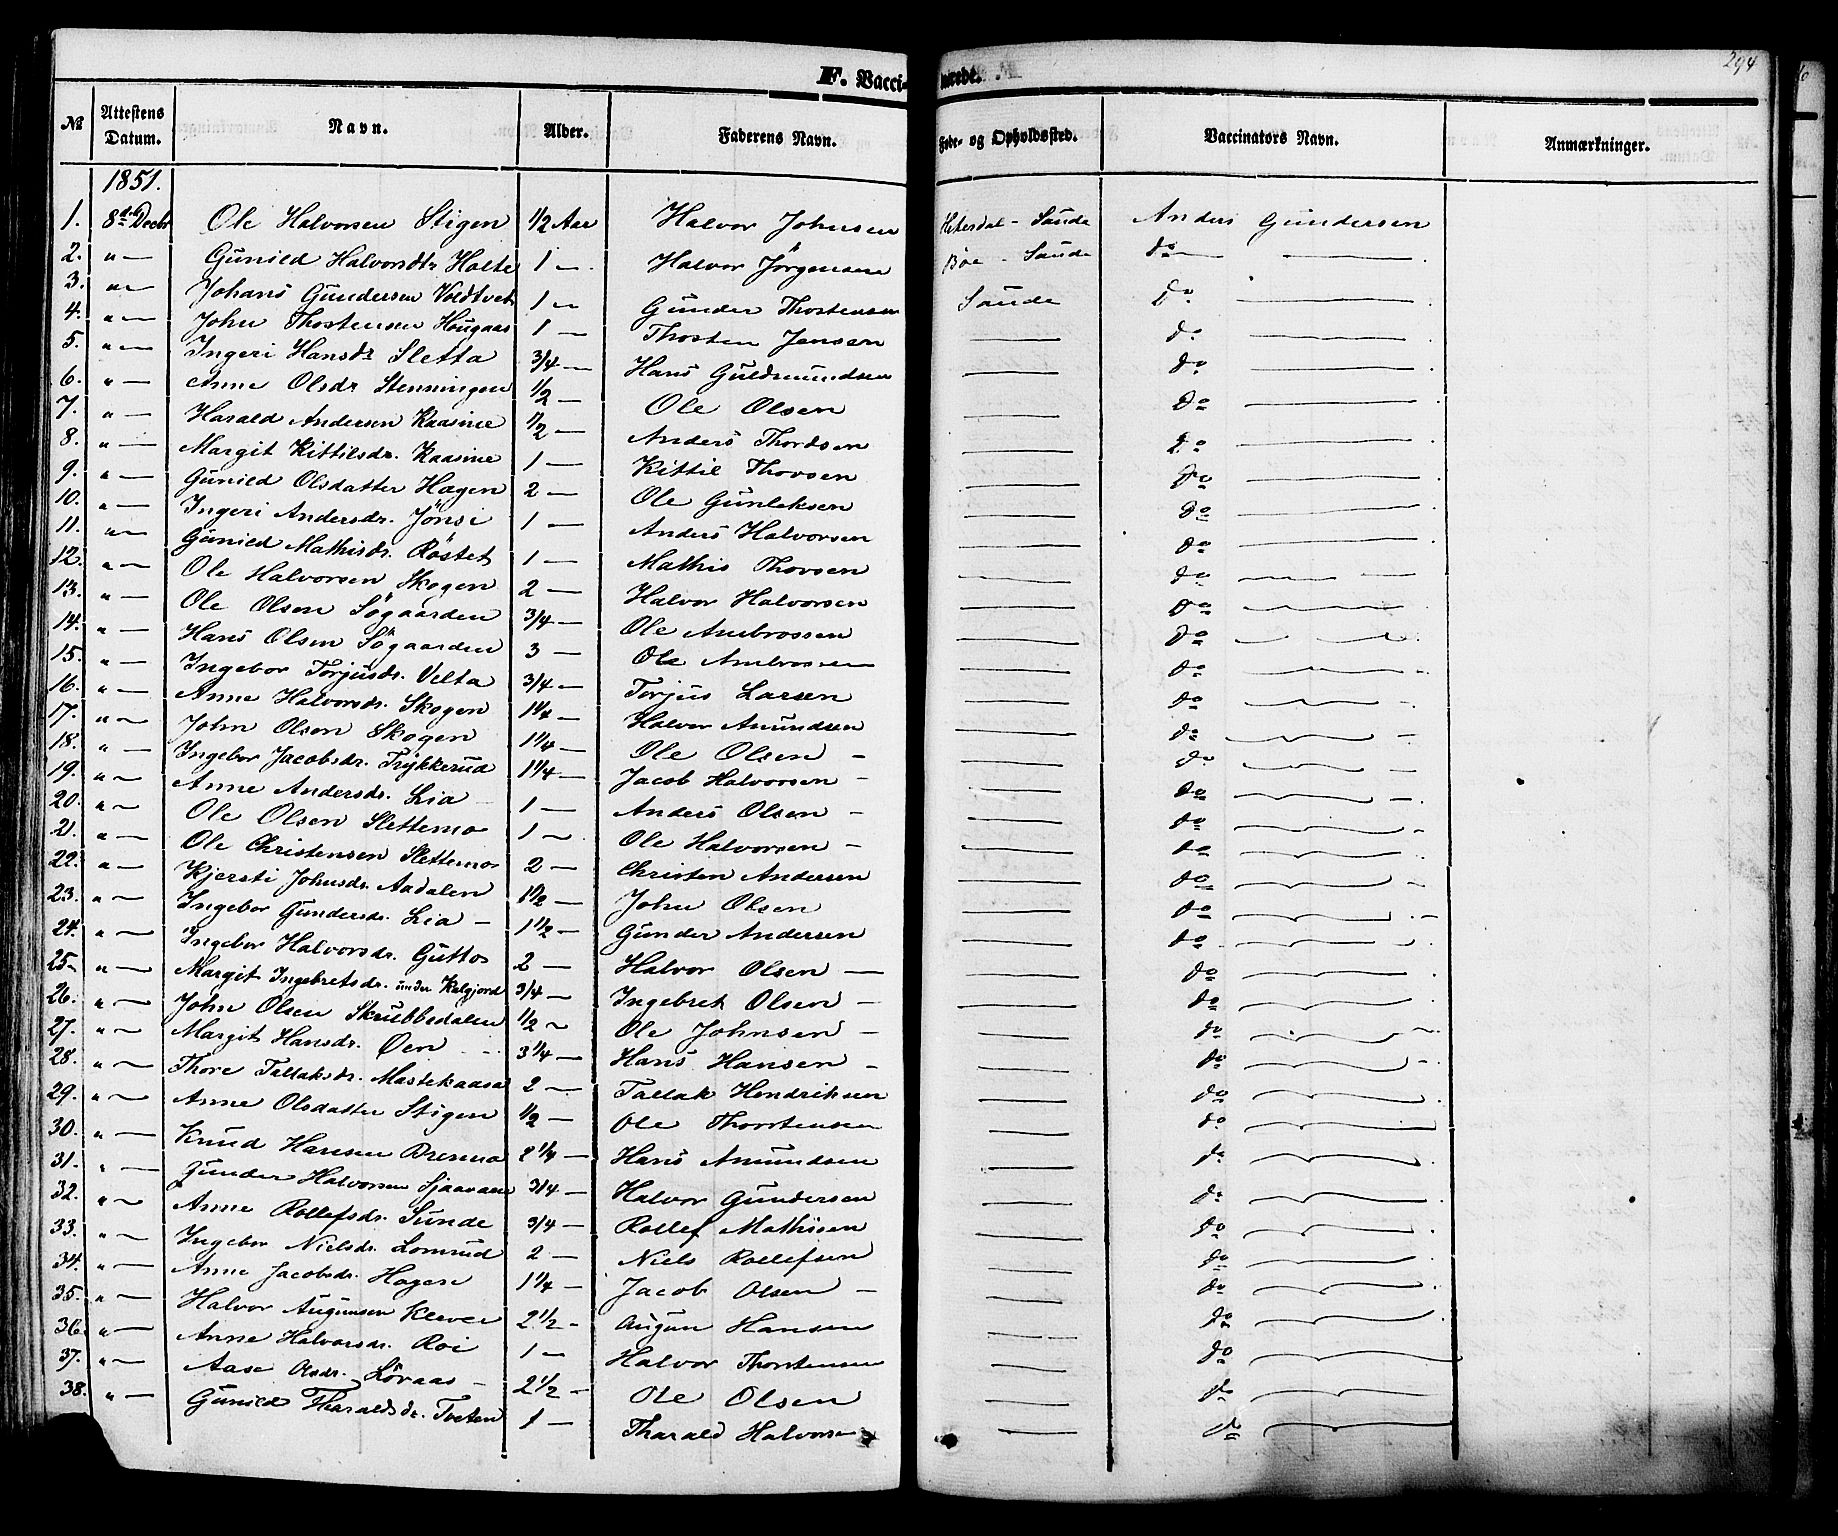 F. Vaccinerede. 294
№ Attestens Datum. Navn. Alder. Faderens Navn. Føde- og Opholdssted. Vaccinators Navn. Anmærkninger.
1851.
1. 8de Decbr Ole Halvorsen Stigen 1/2 Aar Halvor Johnsen Hitterdal - Saude Anders Gundersen
2. " — Gunild Halvorsdtr Holte 1 — Halvor Jörgensen Böe - Saude do —
3. " — Johans Gundersen Voldtvet 1 — Gunder Thostensen Saude Do —
4. " — John Thostensen Hougaas 1 — Thosten Jensen — do —
5. " — Ingeri Hansdr Sletta 3/4 — Hans Guldmundsen — do —
6. " — Anne Olsdr Stenningen 1/2 — Ole Olsen — Do —
7. " — Harald Andersen Kaasine 1/2 — Anders Thordsen — Do —
8. " — Margit Kittilsdr. Kaasine 1 — Kittil Thovsen — Do —
9. " — Gunild Olsdatter Hagen 2 — Ole Gunleksen — Do —
10. " — Ingeri Andersdr. Jönsi 1 — Anders Halvorsen — do —
11. " — Gunild Mathisdr. Röstet 1 — Mathis Thovsen — do —
12. " — Ole Halvorsen Skogen 2 — Halvor Halvorsen — do —
13. " — Ole Olsen Sögaarden 3/4 — Ole Ambrossen — do —
14. " — Hans Olsen Sögaarden 3 — Ole Ambrossen — do —
15. " — Ingebor Torjusdr. Velta 3/4 — Torjus Larsen — do —
16. " — Anne Halvorsdr. Skogen 1 1/4 — Halvor Amundsen — do —
17. " — John Olsen Skogen 1 1/4 — Ole Olsen — do —
18. " — Ingebor Jacobsdr. Trykkerud 1 1/4 — Jacob Halvorsen — do —
19. " — Anne Andersdr. Lia 1 — Anders Olsen — do —
20. " — Ole Olsen Slettemo 1 — Ole Halvorsen — do —
21. " — Ole Christensen Slettemo 2 — Christen Andersen — do —
22. " — Kjersti Johnsdr. Aadalen 1 1/2 — John Olsen — do —
23. " — Ingebor Gundersdr. Lia 1 1/2 — Gunder Andersen — do —
24. " — Ingebor Halvorsdr. Guttos 2 — Halvor Olsen — do —
25. " — Margit Ingebretsdr. under Kalgjord 3/4 — Ingebret Olsen — do —
26. " — John Olsen Skrubbedalen 1/2 — Ole Johnsen — do —
27. " — Margit Hansdr. Öen 3 1/4 — Hans Hansen — do —
28. " — Thore Tallaksdr. Mastekaasa 2 — Tallak Hendriksen — do —
29. " — Anne Olsdatter Stigen 1/2 — Ole Thorstensen — do —
30. " — Knud Hansen 2 1/4 — Hans Amundsen — do —
31. " — Gunder Halvorsen 3/4 — Halvor Gundersen — do —
32. " — Anne Rollefsdr. Sunde 3/4 — Rollef Mathisen — do —
33. " — Ingebor Nielsdr. Lomrud 2 — Niels Rollefsen — do —
34. " — Anne Jacobsdr. Hagen 1 1/4 — Jacob Olsen — do —
35. " — Halvor Augunsen Klever 2 1/2 — Augun Hansen — do —
36. " — Anne Halvorsdr. Roi 1 — Halvor Thorstensen — do —
37. " — Aase Olsdr. Löraas 2 1/2 — Ole Olsen — do —
38. " — Gunild Tharaldsdr. Tveten 1 — Tharald Halvorsen — do —